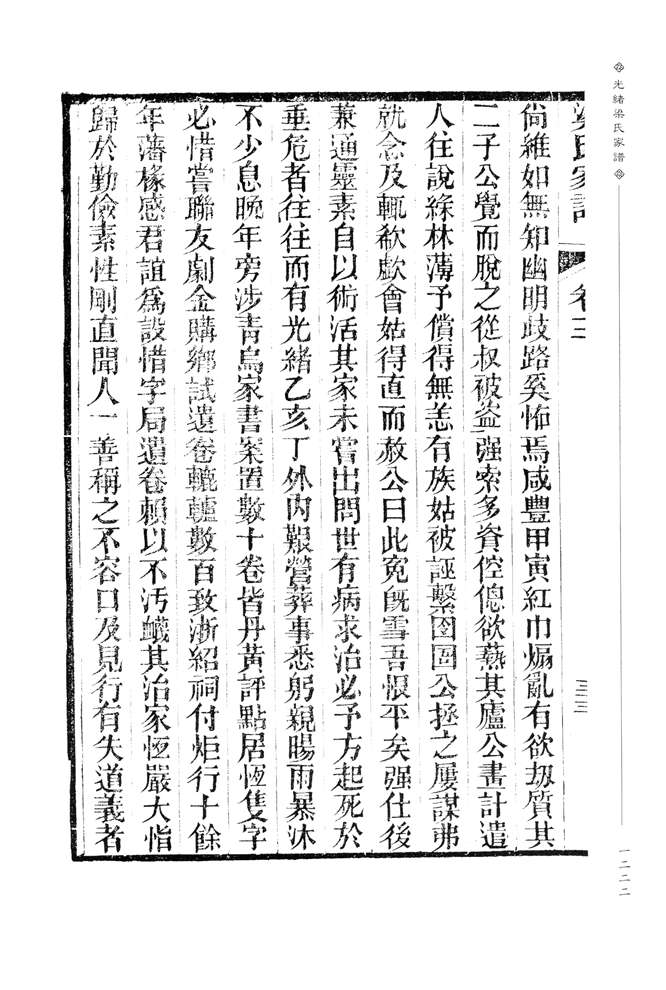 光緒梁氏家譜
一二二二
梁氏家譜 卷三 三三
尙維如無知幽明歧路奚怖焉咸豐甲寅紅巾煽亂有欲刼質其
二子公覺而脫之從叔被盜强索多資倥傯欲燕其廬公畫計遣
人往說綠林薄予償得無恙有族姑被誣繫囹圄公拯之屢謀弗
就念及輒欷歔會姑得直而赦公曰此寃旣雪吾恨平矣强仕後
兼通靈素自以術活其家未嘗出問世有病求治必予方起死於
垂危者往往而有光緒乙亥丁外內艱營葬事悉躬親暘雨暴沐
不少息晚年旁涉靑烏家書案置數十卷皆丹黃評點居恆隻字
必惜嘗聯友劇金購鄕試遺卷轆轤數百致浙紹祠付炬行十餘
年藩椽感君誼爲設惜字局遺卷賴以不汚衊其治家恆嚴大恉
歸於勤儉素性剛直聞人一善稱之不容口及見行有失道義者